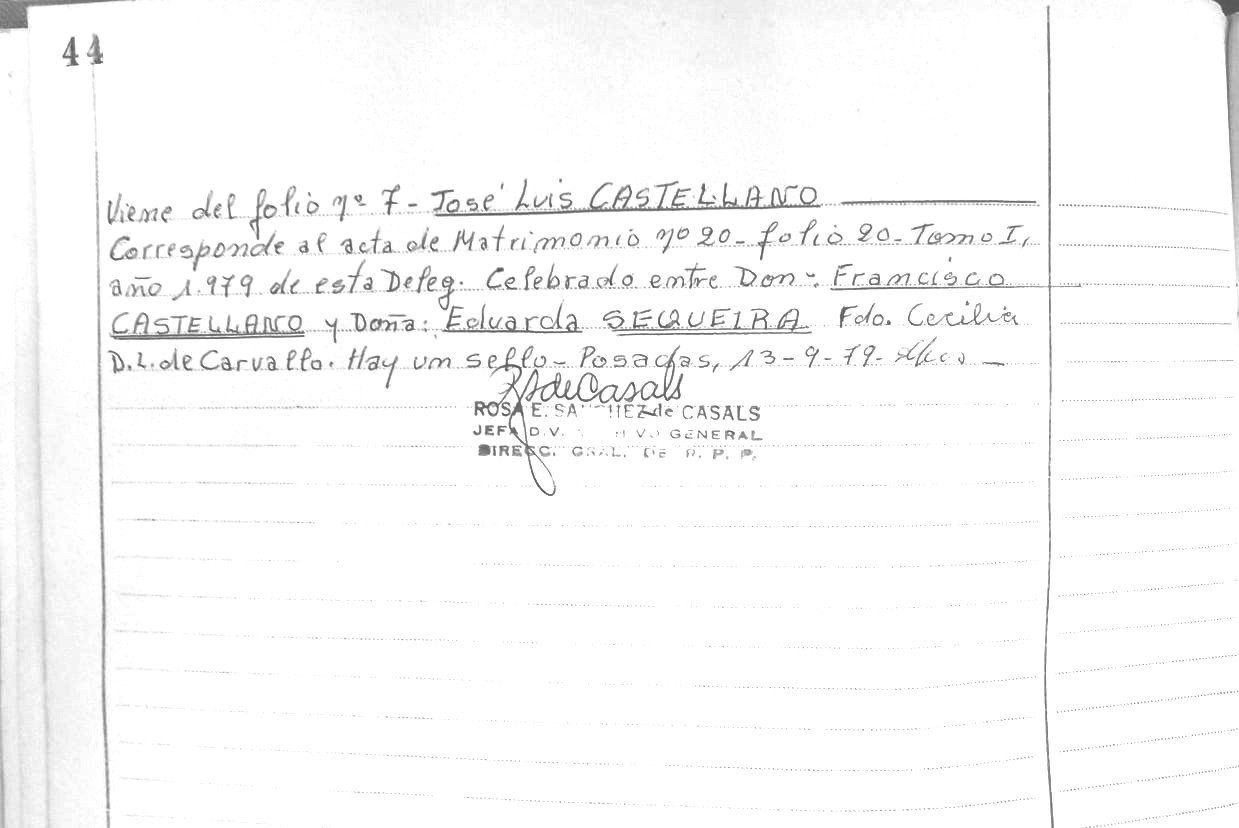 44
Viene del folio nº 7 - José Luis CASTELLANO
Corresponde al acta de Matrimonio nº 20 - folio 20 - Tomo I,
año 1.979 de esta Deleg. Celebrado entre Don: Francisco
CASTELLANO y Doña: Eduarda SEQUEIRA Fdo. Cecilia
D.L. de Carvallo. Hay un sello - Posadas, 13-9-79 -
de Casals
ROSA E. de CASALS
JEFA GENERAL
DIRECC. GRAL. DE R. P. P.